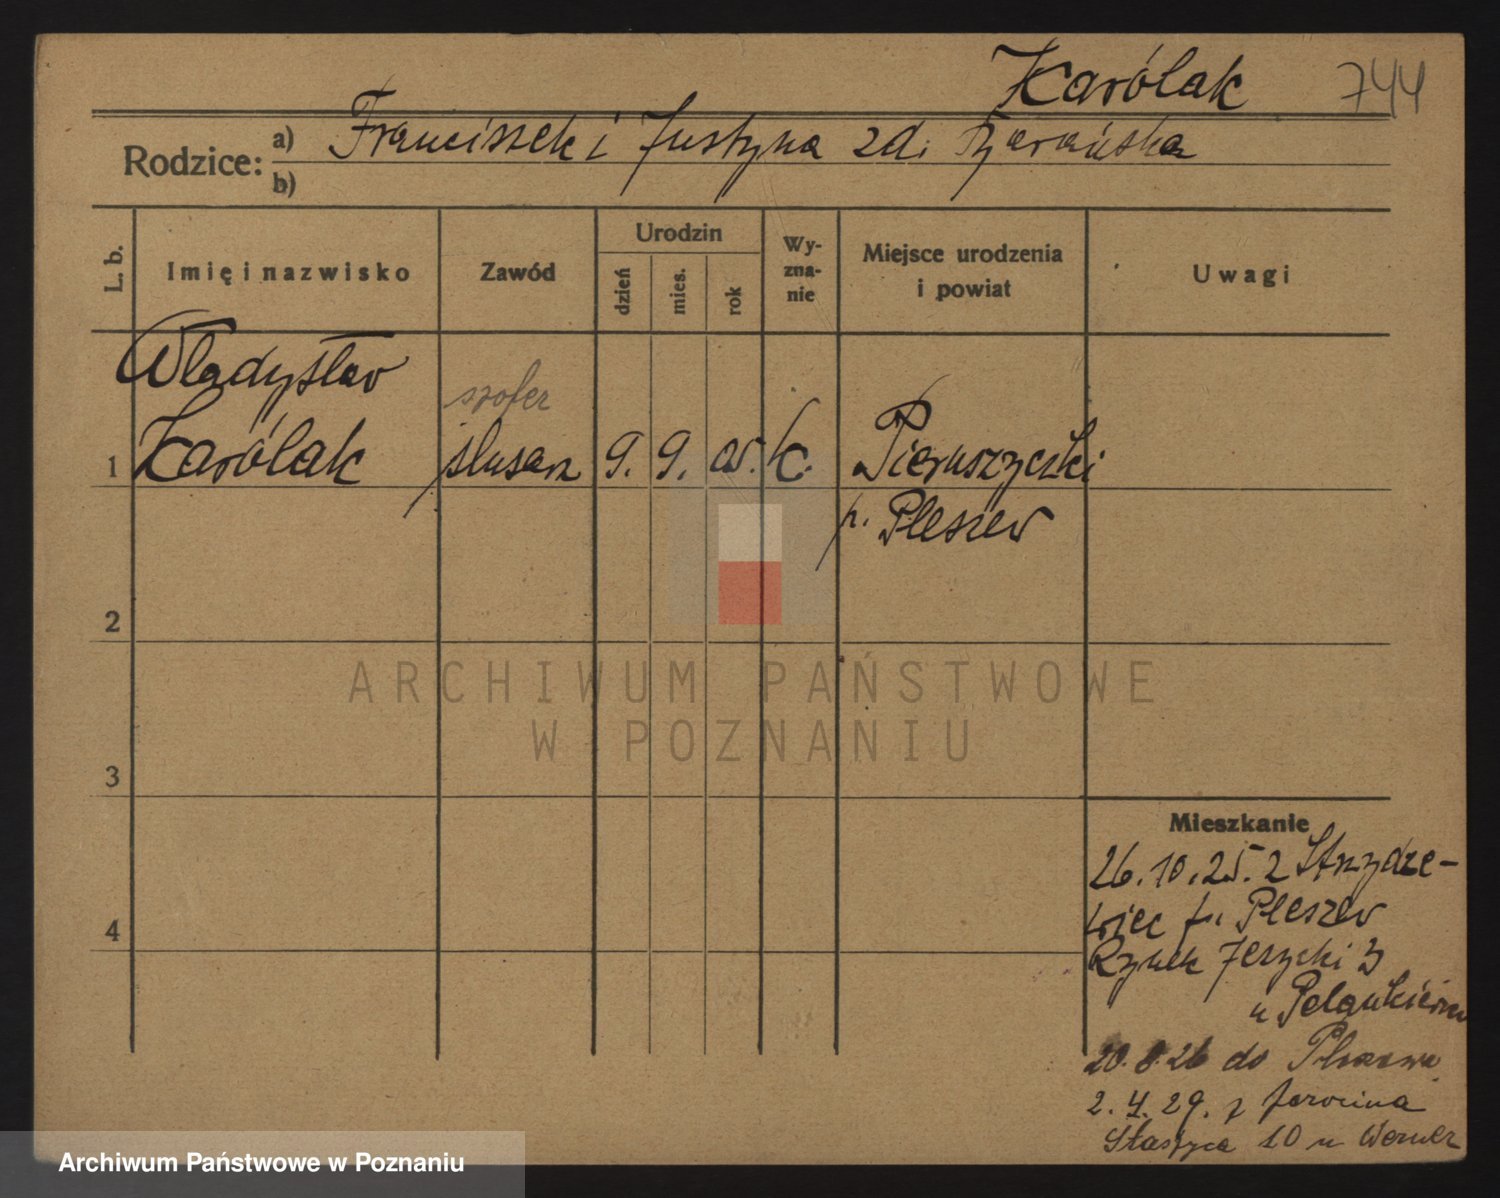 Karólak 744
Rodzice: a) Franciszek i Justyna zd.
b)
L. b.
Imię i nazwisko
Zawód
Urodzin
dzień
mies.
rok
Wy-
zna-
nie
Miejsce urodzenia
i powiat
Uwagi
Władysław
szofer
1 Karólak ślusarz 9. 9. 05. k. Pieruszyczki
p. Pleszew
2
ARCHIWUM PAŃSTWOWE
W POZNANIU
3
Mieszkanie
26.10.25. z Strzydze-
wiec p. Pleszew
4
Rynek Jeżycki 3
u
20.8.26 do Pleszewa
2.4.29. z Jarocina
Staszyca 10 u Werner
Archiwum Państwowe w Poznaniu